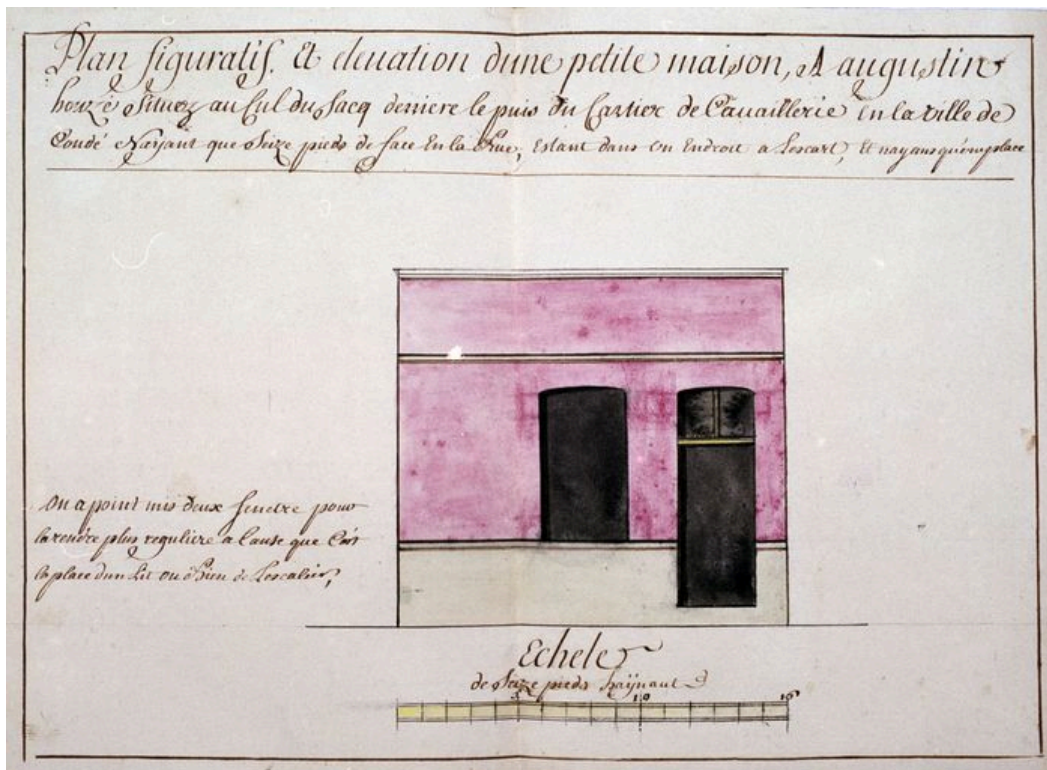 Plan figuratif. Et eleuation dune petite maison, A augustin
houzé Situez au Cul du Sacq derriere le puis du Cartier de Cauaillerie en la ville de
Condé Nayant que Seize pieds de face En la Rue, Estant dans un Endroit a Lescart, Et nayans quémplace
On a point mis deux fenetre pour
la rendre plus reguliere a Cause que C'est
la place dun Lit ou Bien de Lescalier,
Echele
de Seize pieds haÿnaut
5 10 16